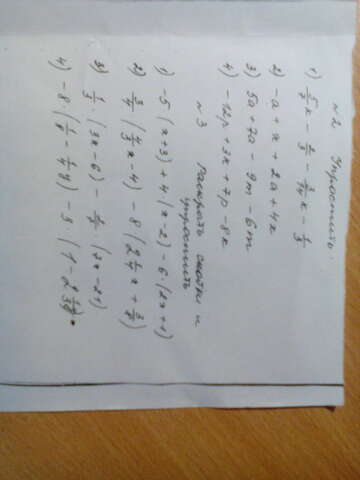 №2 Упростить:
1) 5/8x - 2/3 - 3/4x - 1/3
2) -a + x + 2a + 4x
3) 5a + 7a - 9m - 6m
4) -12p + 3x + 7p - 8x
№3 Раскрыть скобки и
упростить
1) -5(x+3) + 4(x-2) - 6·(2x+1)
2) 3/4(4/3x-4) - 8(2 1/4x + 3/8)
3) 1/3·(3x-6) - (7x-21)
4) -8·(1/8 - 1/4y) - 9·(1-2